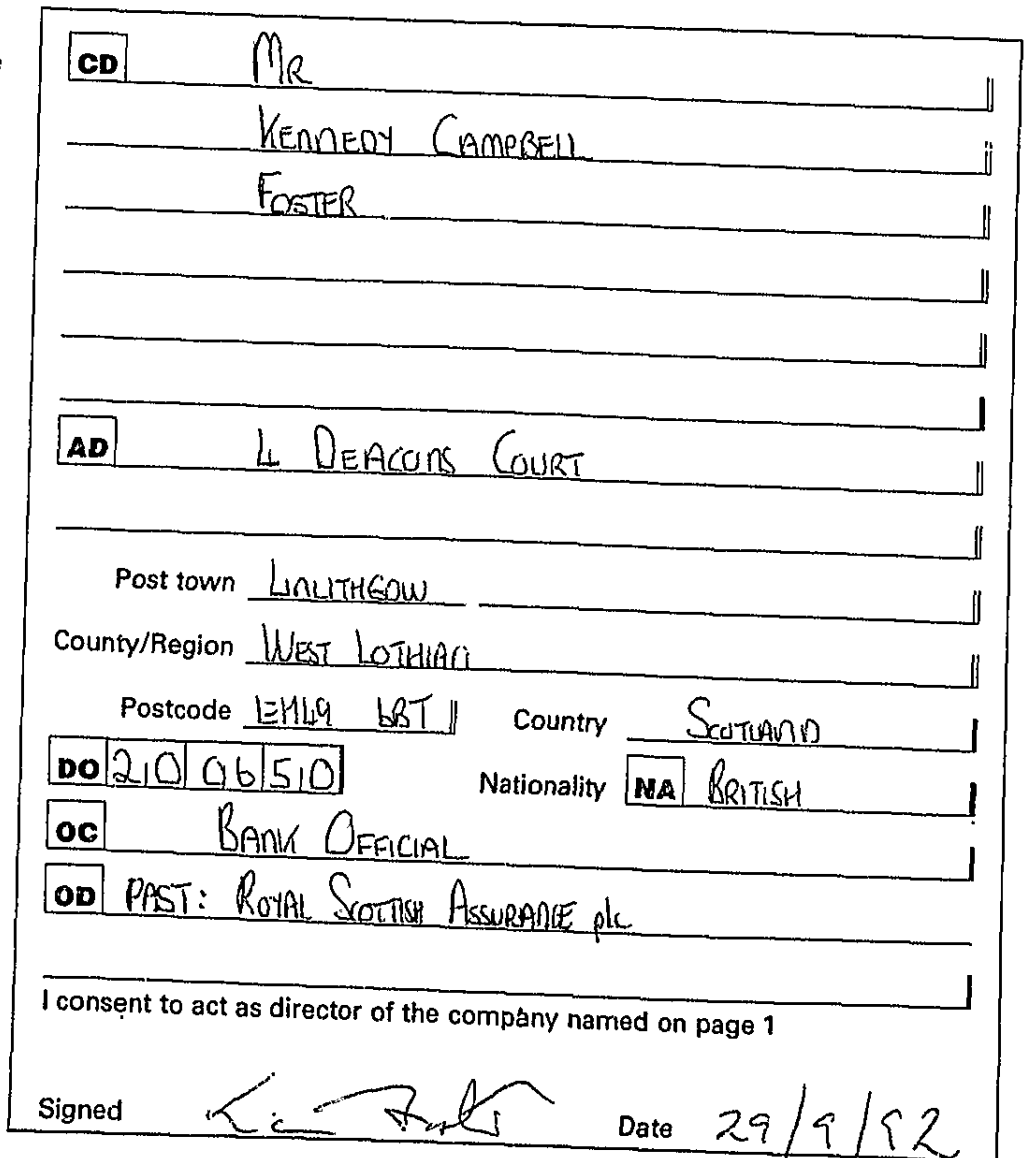 CD MR
KENNEDY CAMPBELL
FOSTER
AD 4 DEACONS COURT
Post town LINLITHGOW
County/Region WEST LOTHIAN
Postcode EH49 6BT Country SCOTLAND
DO 20 06 50 Nationality NA BRITISH
OC BANK OFFICIAL
OD PAST: ROYAL SCOTTISH ASSURANCE plc
I consent to act as director of the company named on page 1
Signed Date 29/9/92